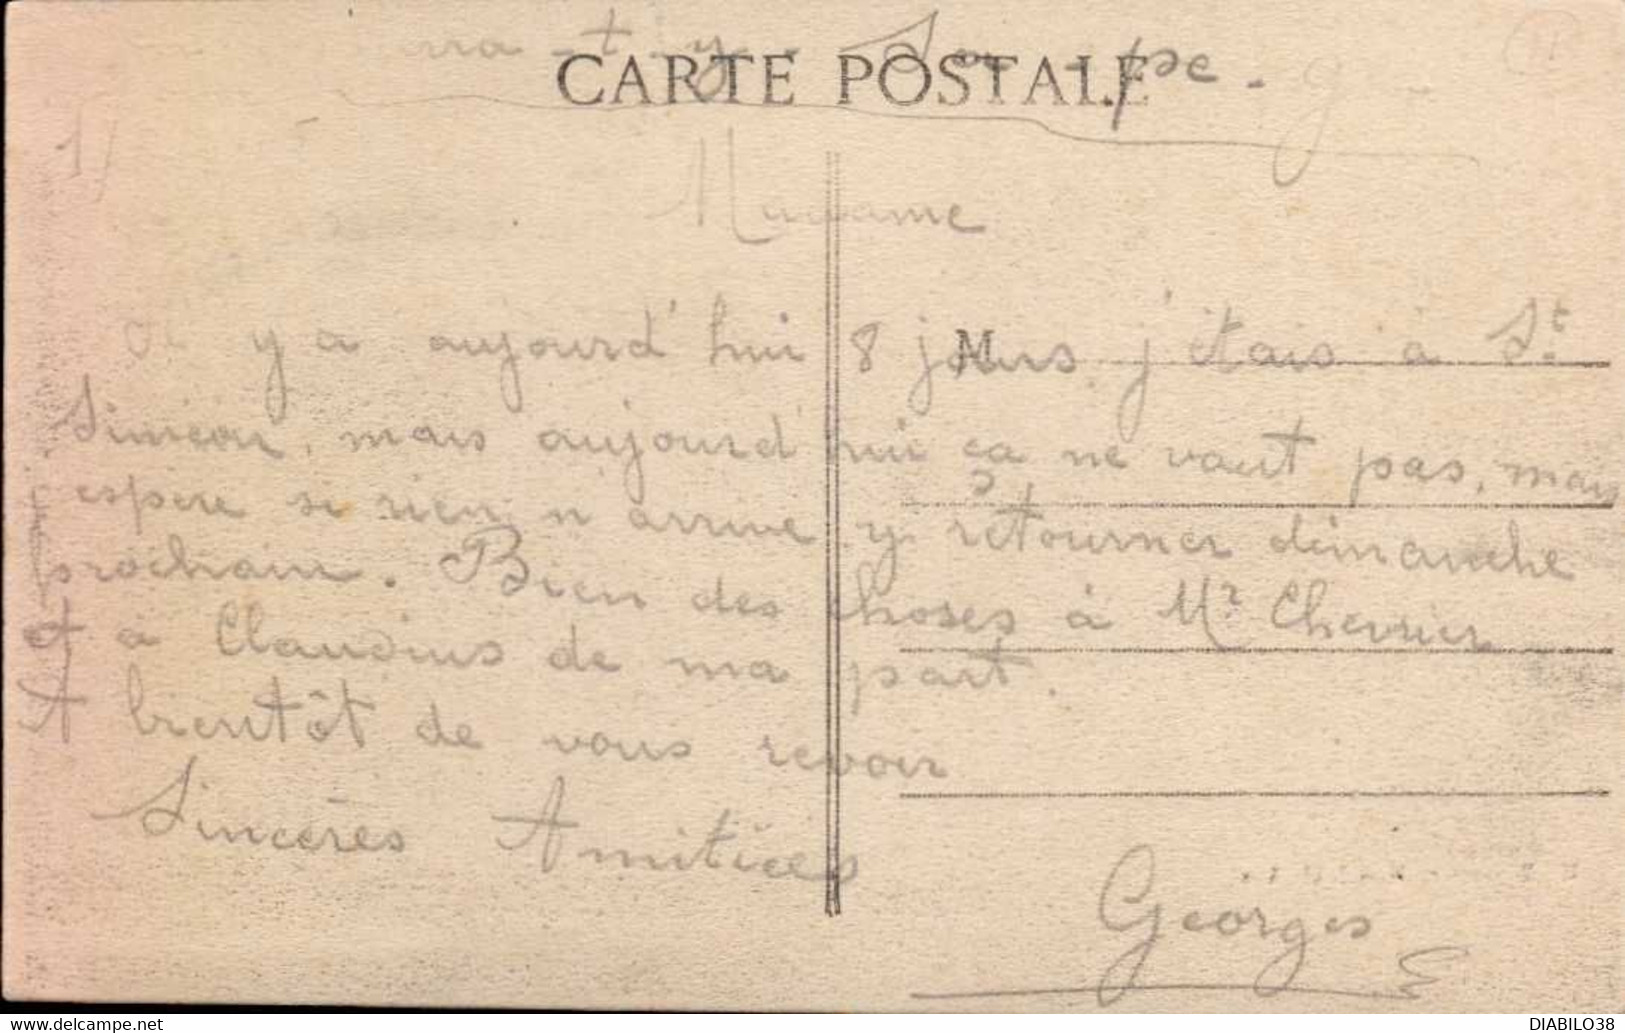 CARTE POSTALE
Madame
Il y a aujourd'hui 8 jours j'étais à St.
Siméon, mais aujourd'hui ça ne vaut pas, mais
espère si rien n'arrive y retourner dimanche
prochain. Bien des choses à Mr Chevrier
et à Claudius de ma part.
A bientôt de vous revoir
Sincères Amitiées
Georges
M
DIABILO38